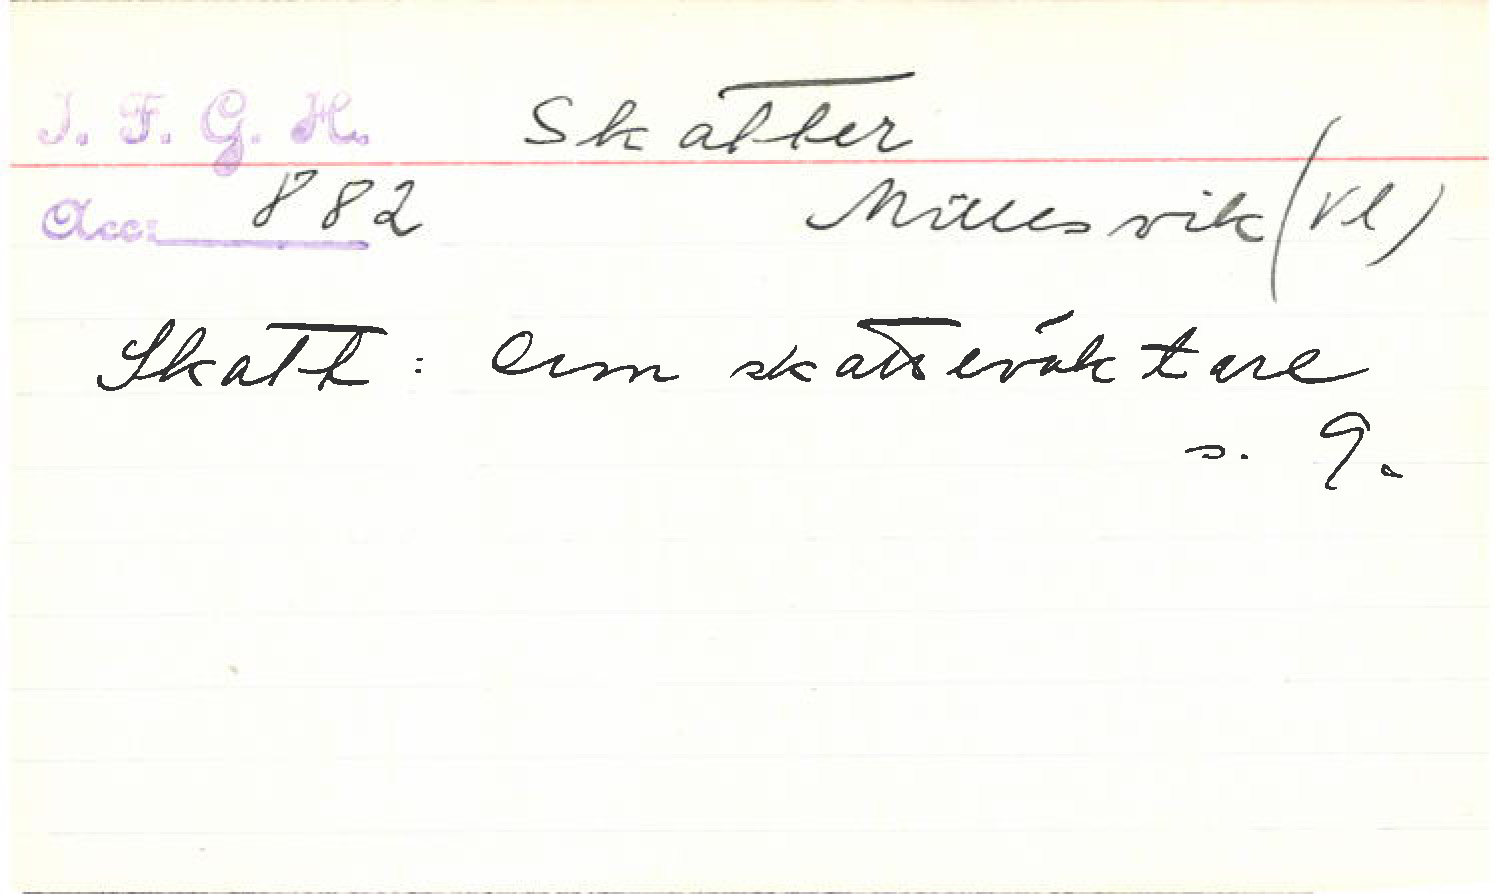 I. F. G. H. Skatter
Acc: 882 Millesvik (Vl)
Skatt: Om skatteväktare
s. 9.